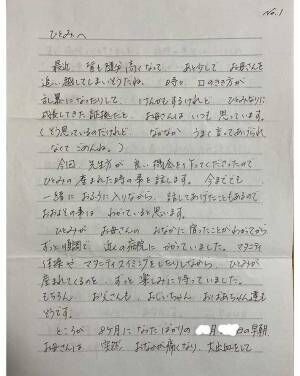 No.1
ひとみへ
最近、背も随分高くなって、あと少しで お母さんを
追い越してしまいそうだね。 時々、口のきき方が
乱暴になったりして けんかもするけれど、ひとみなりに
成長してきた証拠だと、お母さんは いつも 思っています。
(そう思っているのだけれど、なかなか うまく 言ってあげられ
なくて ごめんね。)
今回、先生方が 良い機会を 下さったので
ひとみの 産まれた時の事を 話します。 今までも
一緒に おふろに 入りながら、話してあげたこともあるので
おおよその事は わかっていると 思います。
ひとみが お母さんの おなかに 宿ったことが わかってから
ずっと 順調で、近くの病院に かかっていました。マタニティ
体操や マタニティスイミングをしたりしながら、ひとみが
産まれてくるのを ずっと 楽しみに 待っていました。
もちろん、お父さんも、おじいちゃん、おばあちゃん達も
そうです。
ところが 8ヶ月に なったばかりの 月 日の早朝
お母さんは 突然、おなかが 痛くなり、大出血をして